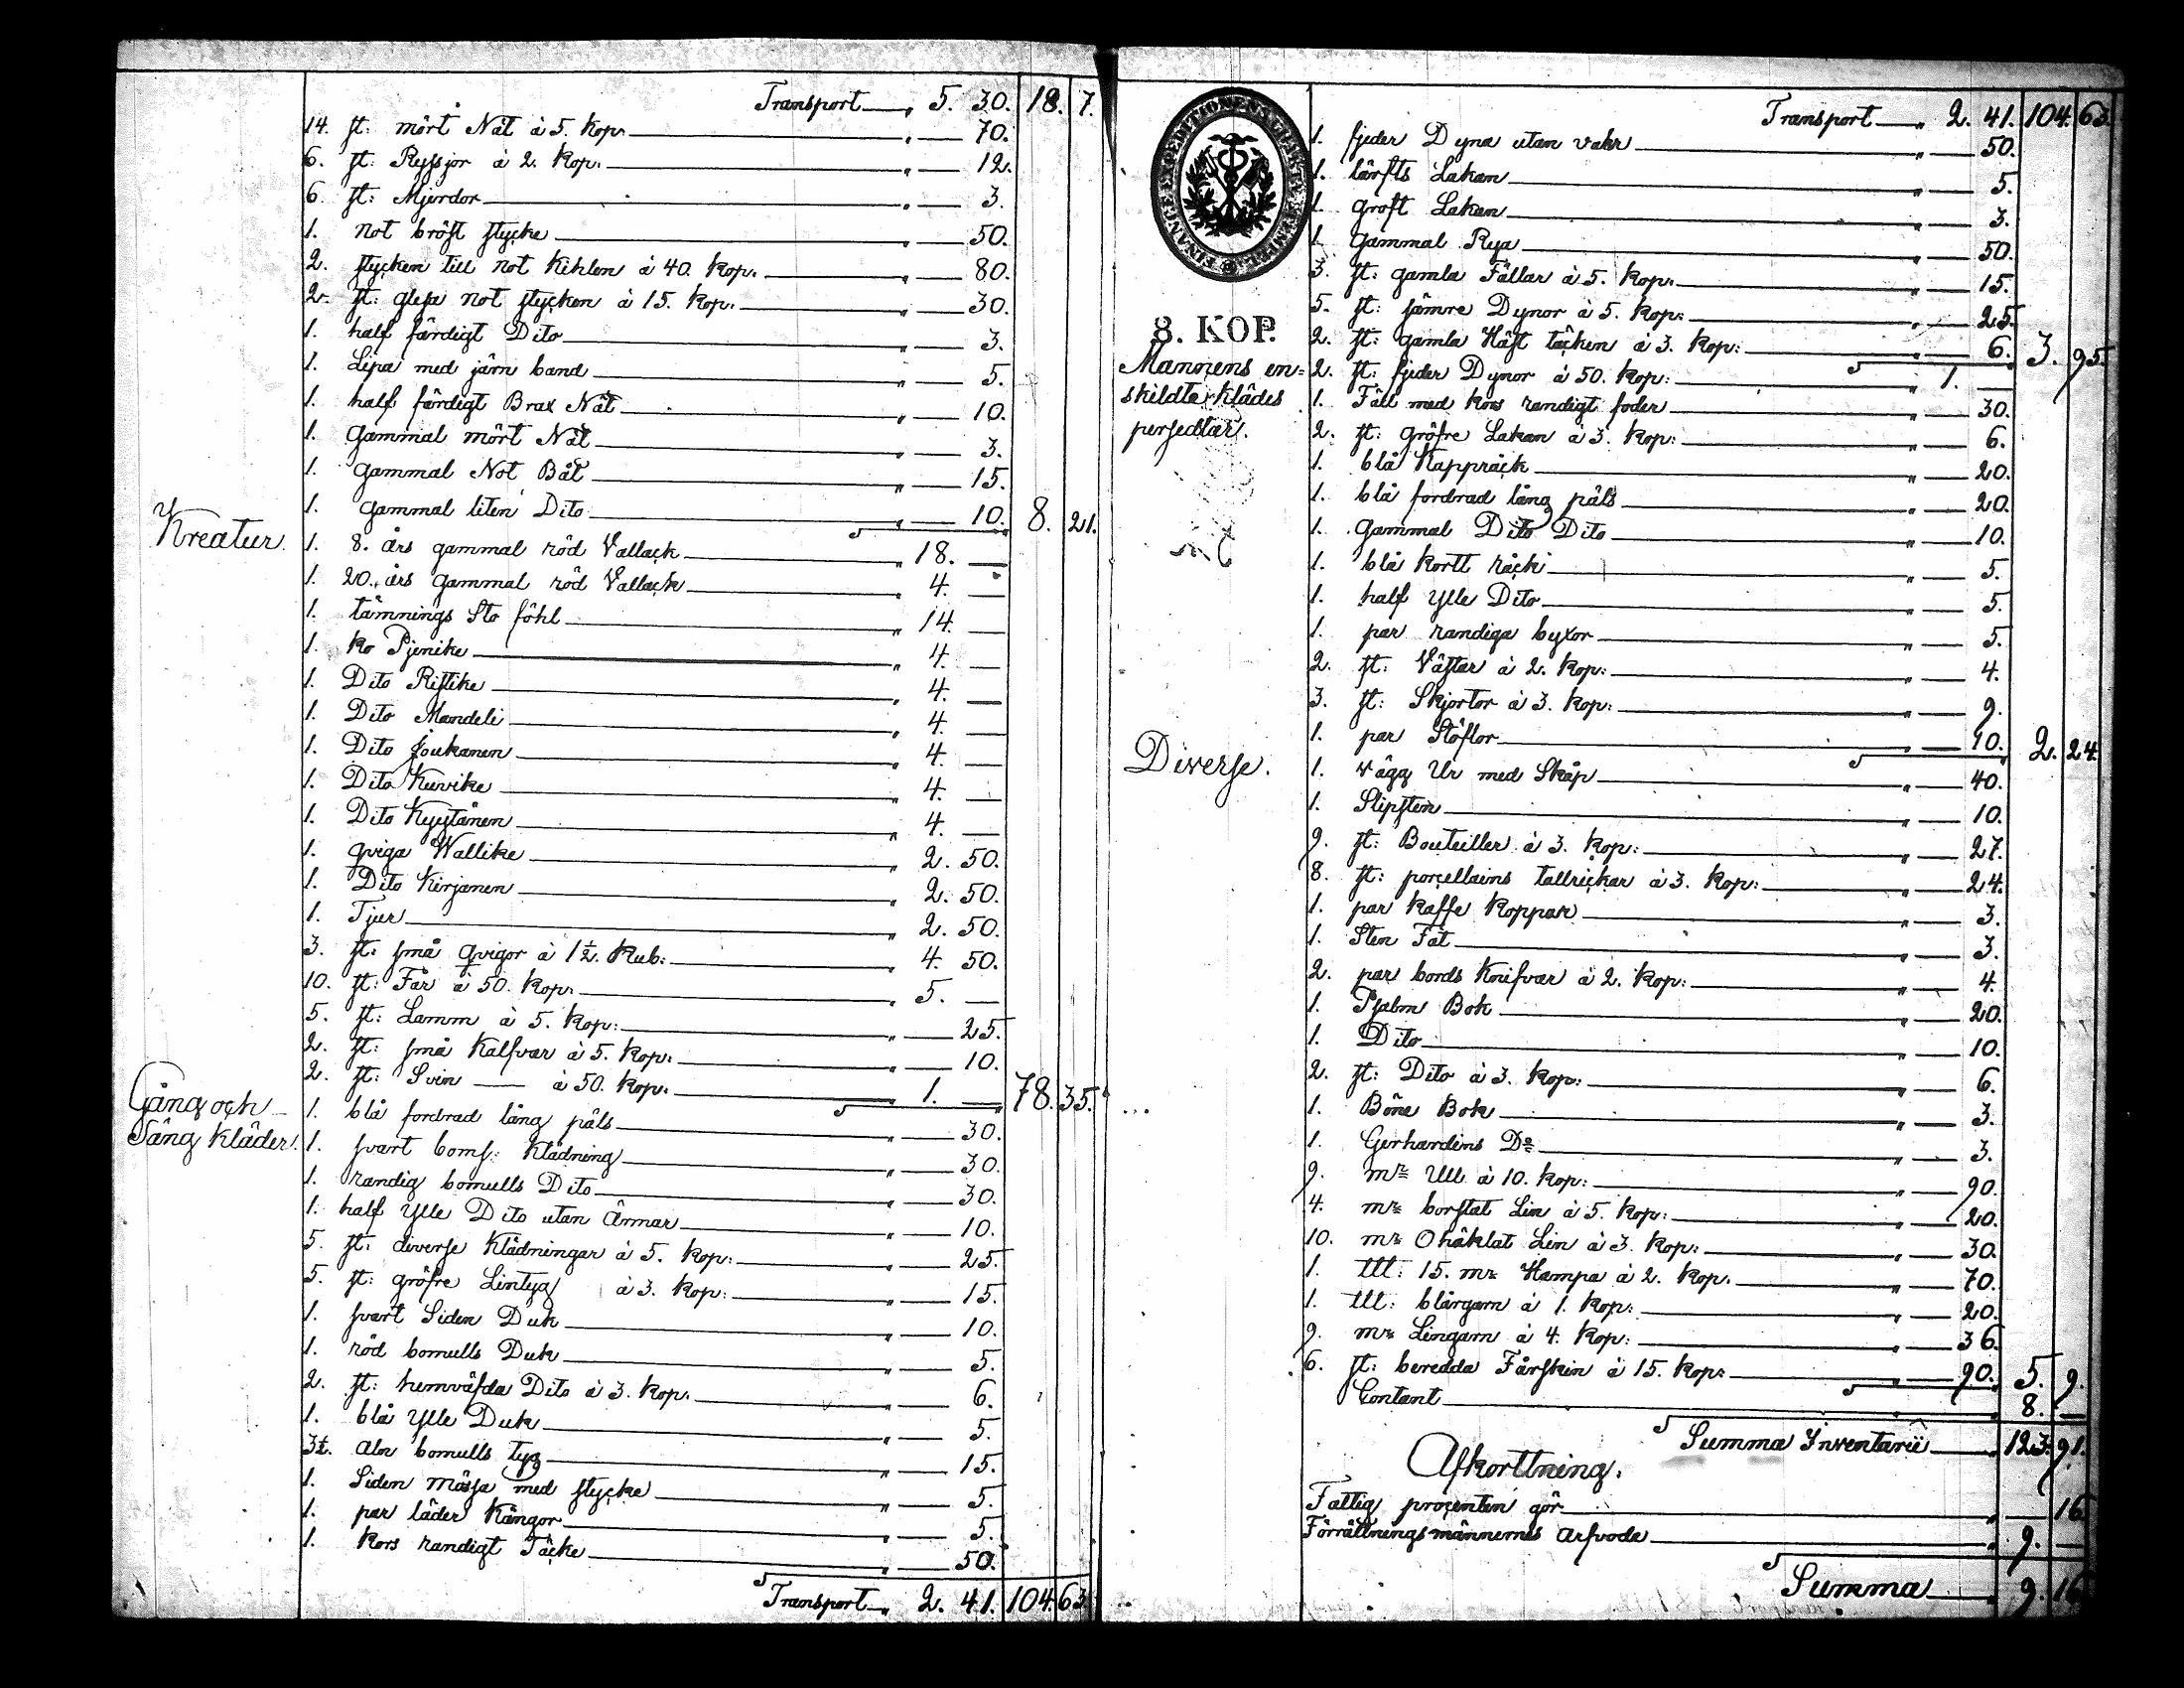 Transport " 5. 30. 18. 7.
14. st: mört Nät à 5. kop: " — 70.
6. st: Ryssjor à 2. kop: " — 12.
6. st: Mjerdor " — 3.
1. not bröst stycke " — 50.
2. stycken till not Kihlen à 40. kop. " — 80.
2. st: glesa not stycken à 15. kop. " — 30.
1. half färdigt Dito " — 3.
1. Lipa med järn band " — 5.
1. half färdigt Brax Nät " — 10.
1. gammal mört Nät " — 3.
1. gammal Not Båt " — 15.
1. gammal liten Dito " — 10. 8. 21.
Kreatur.
1. 8. års gammal röd Vallack " 18. —
1. 20. års gammal röd Vallack " 4. —
1. tämnings Sto föhl " 14. —
1. ko Pjenike " 4. —
1. Dito Ristike " 4. —
1. Dito Mandeli " 4. —
1. Dito Joukanen " 4. —
1. Dito Kuvike " 4. —
1. Dito Kyytänen " 4. —
1. qviga Wallike " 2. 50.
1. Dito Kirjanen " 2. 50.
1. Tjur " 2. 50.
3. st: små qvigor à 1½. Rub: " 4. 50.
10. st: Får à 50. kop: " 5. —
5. st: Lamm à 5. kop: " — 25.
2. st: små Kalfvar à 5. kop: " — 10.
2. st: Svin — à 50. kop. " 1. — 78. 35.
Gång och
Säng Kläder.
1. blå fordrad lång päls " — 30.
1. svart boms: Klädning " — 30.
1. randig bomulls Dito " — 30.
1. half ylle Dito utan Ärmar " — 10.
5. st: diverse Klädningar à 5. kop: " — 25.
5. st: gröfre Lintyg à 3. kop: " — 15.
1. svart Siden Duk " — 10.
1. röd bomulls Duk " — 5.
2. st: hemväfda Dito à 3. kop. " — 6.
1. blå ylle Duk " — 5.
3½. aln bomulls tyg " — 15.
1. Siden mössa med stycke " — 5.
1. par läder Kängor " — 5.
1. kors randigt Täcke " — 50.
Transport " 2. 41. 104. 63.
FINANCE EXPEDITIONENS CHARTÆ STEMPEL
8. KOP.
Transport " 2. 41. 104. 63.
1. fjeder Dyna utan vahr " — 50.
1. lärfts Lakan " — 5.
1. groft Lakan " — 3.
1. gammal Rya " — 50.
3. st: gamla Fällar à 5. kop. " — 15.
5. st: sämre Dynor à 5. kop: " — 25.
2. st: gamla Häst täcken à 3. kop: " — 6. 3. 95.
Mannens en=
skildta klädes
persedlar.
2. st: fjeder Dynor à 50. kop: " 1. —
1. Fäll med kors randigt foder " — 30.
2. st: gröfre Lakan à 3. kop: " — 6.
1. blå Kappräck " — 20.
1. blå fordrad lång päls " — 20.
1. gammal Dito Dito " — 10.
1. blå kortt räck " — 5.
1. half ylle Dito " — 5.
1. par randiga byxor " — 5.
2. st: Västar à 2. kop: " — 4.
3. st: Skjortor à 3. kop: " — 9.
1. par Stöflor " — 10. 2. 24.
Diverse.
1. vägg Ur med Skåp " — 40.
1. Slipsten " — 10.
9. st: Bouteiller à 3. kop: " — 27.
8. st: porcellains tallrickar à 3. kop: " — 24.
1. par kaffe koppar " — 3.
1. Sten Fat " — 3.
2. par bords Knifvar à 2. kop: " — 4.
1. Psalm Bok " — 20.
1. Dito " — 10.
2. st: Dito à 3. kop: " — 6.
1. Böne Bok " — 3.
1. Gerhardins Do " — 3.
9. mk Ull à 10. kop: " — 90.
4. mk borstat Lin à 5. kop: " — 20.
10. mk Ohäklat Lin à 3. kop: " — 30.
1. lll: 15. mk Hampa à 2. kop. " — 70.
1. lll: blårgarn à 1. kop: " — 20.
9. mk Lingarn à 4. kop: " — 36.
6. st: beredda Fårskin à 15. kop: " — 90. 5. 9.
Contant " 8. —
Summa Inventarii " 123. 91.
Afkorttning.
Fattig procenten gör " — 16.
Förrättningsmännernes arfvode " 9. —
Summa " 9. 16.